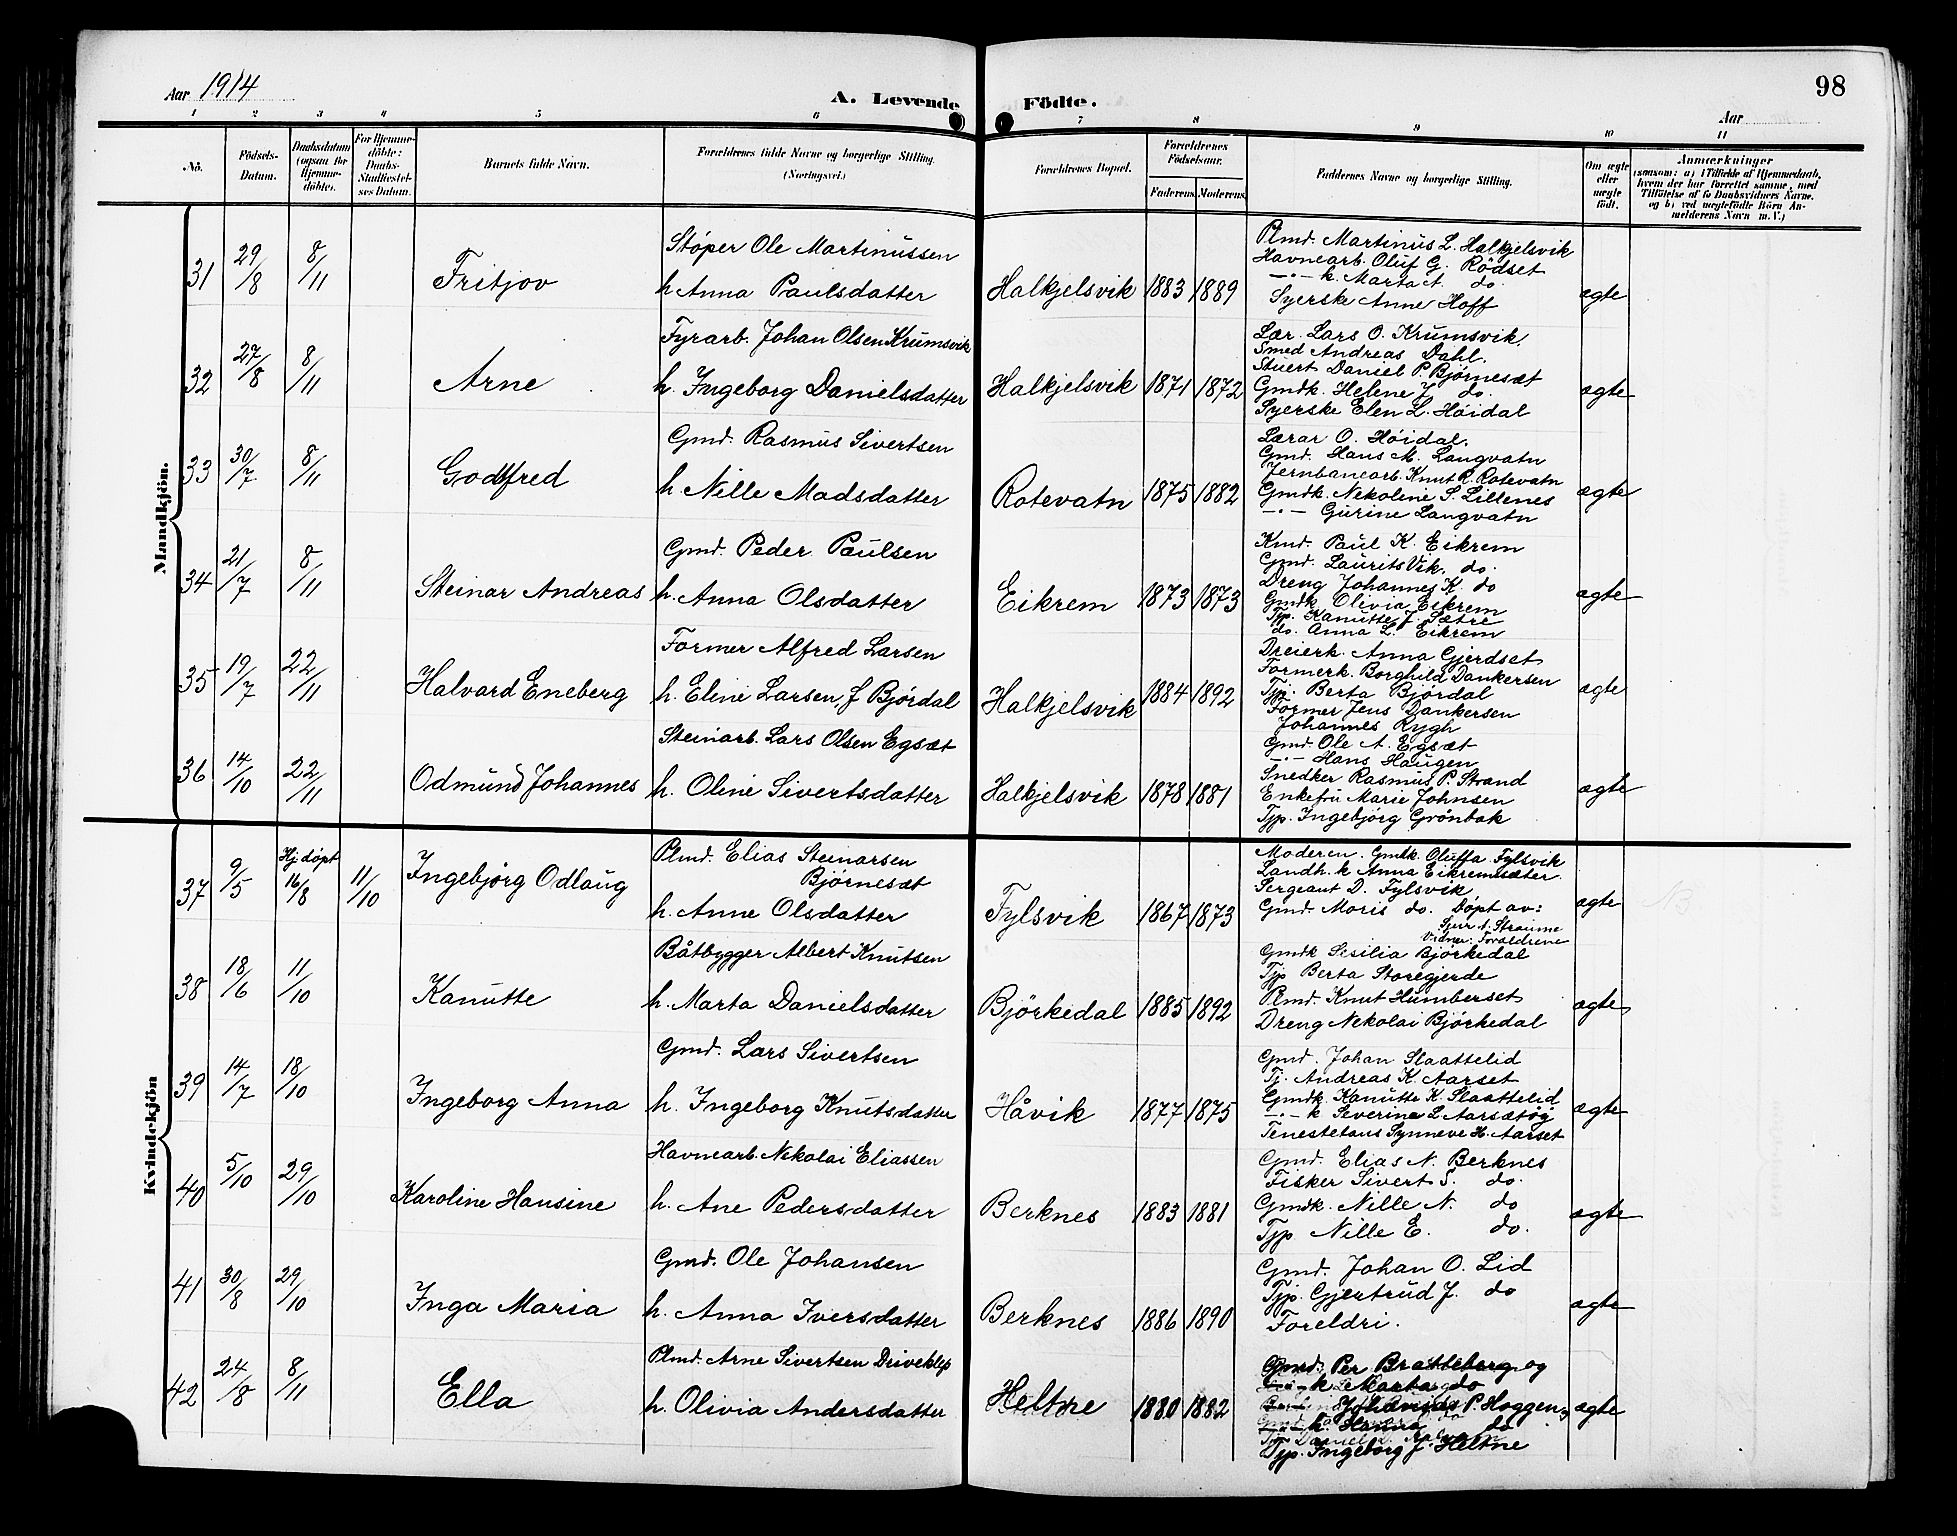 98
Aar 1914
A. Levende Födte.
Aar
1 2 3 4 5 6 7 8 9 10 11
No.
Födsels-Datum.
Daabsdatum (ogsaa for Hjemme-döbte).
For Hjemme-döbte: Daabs-Stadfæstelses Datum.
Barnets fulde Navn.
Forældrenes fulde Navne og borgerlige Stilling. (Næringsvei.)
Forældrenes Bopæl.
Forældrenes Födselsaar.
Faderens Moderens
Faddernes Navne og borgerlige Stilling.
Om ægte eller uægte födt.
Anmærkninger
(saasom: a) i Tilfælde af Hjemmedaab, hvem der har forrettet samme, med Tilföielse af to Daabsvidners Navne. og b) ved uægtefödte Börn Anmelderens Navn m. V.)
Mandkjön.
31 29/8 8/11 Fritjov
Støper Ole Martinussen
h Anna Paulsdatter
Halkjelsvik 1883 1889
Plmd. Martinus L. Halkjelsvik
Havnearb. Oluf G. Rödset
—"— k. Marta A. do.
Syerske Anne Hoff
ægte
32 27/8 8/11 Arne
Fyrarb. Johan Olsen Krumsvik
h. Ingeborg Danielsdatter
Halkjelsvik 1871 1872
Lær. Lars O. Krumsvik.
Smed Andreas Dahl.
Stuert Daniel P. Bjørnesæt
Gmdk. Helene J. do.
Syerske Elen L. Høidal
ægte
33 30/7 8/11 Godtfred
Gmd. Rasmus Sivertsen
h. Nille Madsdatter
Rotevatn 1875 1882
Lærar O. Høidal.
Gmd. Hans M. Langvatn
Jernbanearb. Knut R. Rotevatn
Gmdk. Nekoline S. Lillenes
—"— Gurine Langvatn
ægte
34 21/7 8/11 Steinar Andreas
Gmd. Peder Paulsen
h. Anna Olsdatter
Eikrem 1873 1873
Kmd. Paul K. Eikrem
Gmd. Laurits Vik. do.
Dreng Johannes K. do
Gmdk Olivia Eikrem
Tjp. Kanutte J. Sætre
do. Anna L. Eikrem
ægte
35 19/7 22/11 Halvard Eneberg
Former Alfred Larsen
h. Eline Larsen, f Bjørdal
Halkjelsvik 1884 1892
Dreierk. Anna Gjerdset
Formerk. Borghild Dankersen
Tjp. Berta Bjørdal
Former Jens Dankersen
Johannes Rygh
ægte
36 14/10 22/11 Odmund Johannes
Steinarb. Lars Olsen Egsæt
h. Oline Sivertsdatter
Halkjelsvik 1878 1881
Gmd. Ole A. Egsæt
—"— Hans Haugen
Snedker Rasmus P. Strand
Enkefru Marie Johnsen
Tjp. Ingebjørg Grönbak
ægte
Kvindekjön
37 9/5 Hjdöpt 16/8 11/10 Ingebjørg Odlaug
Plmd. Elias Steinarsen
Bjørnesæt
h. Anne Olsdatter
Fylsvik 1867 1873
Moderen. Gmdk. Oluffa Fylsvik
Landh. k Anna Eikremsæter
Sergeant D. Fylsvik
Gmd. Moris do. Döpt av:
Sjur A. Straume
Vidner: Foreldrene
ægte
NB
38 18/6 11/10 Kanutte
Båtbygger Albert Knutsen
h. Marta Danielsdatter
Björkedal 1885 1892
Gmdk Sesilia Björkedal
Tjp Berta Storegjerde
Plmd. Knut Humberset
Dreng Nekolai Björkedal
ægte
39 14/7 18/10 Ingeborg Anna
Gmd. Lars Sivertsen
h. Ingeborg Knutsdatter
Håvik 1877 1875
Gmd. Johan Slaattelid
Tj. Andreas K. Aarset
Gmdk. Kanutte K. Slaattelid
—"— k Severine L Aarsetøy
Tenestetaus Synneve H. Aarset
ægte
40 5/10 29/10 Karoline Hansine
Havnearb. Nekolai Eliassen
h. Ane Pedersdatter
Berknes 1883 1881
Gmd. Elias N. Berknes
Fisker Sivert S. do.
Gmdk. Nille N. do
Tjp Nille E. do.
ægte
41 30/8 29/10 Inga Maria
Gmd. Ole Johansen
h. Anna Iversdatter
Berknes 1886 1890
Gmd. Johan O. Lid
Tjp. Gjertrud J. do
Foreldri.
ægte
42 24/8 8/11 Ella
Plmd. Arne Sivertsen Driveklep
h. Olivia Andersdatter
Heltne 1880 1882
Gmd. Per Bratteberg og
k. Marta do
Johannes P. Hoggen,
k. Hanna do
Tjp. Ingeborg J. Heltne
ægte